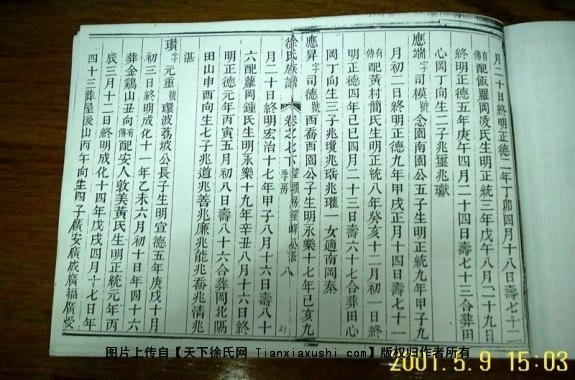 月二十日終明正德二年丁卯四月十八日壽七十二
有傳配飯羅岡凌氏生明正統三年戊午八月二十九日
終明正德五年庚午四月二十四日壽七十三合葬田
心岡丁向生二子兆 兆嶽
應端字司模號念園南園公五子生明正統九年甲子九
月初二日終明正德九年甲戌正月十四日壽七十一
有傳配黃村簡氏生明正統八年癸亥十二月初一日終
明正德四年己巳四月二十三日壽六十七合葬田心
岡丁向生三子兆瓊兆 兆瓘一女適南岡秦
應昇字司德號西喬西園公子生明永樂十七年己亥九
徐氏族譜 卷之七下 八
月二十日終明弘治十七年甲子八月十六日壽八十
六配蘿岡鍾氏生明永樂十九年辛丑八月十六日終
明正德元年丙寅五月初八日壽八十六合葬岡北隔
田山申酉向生七子兆道兆善兆廉兆能兆喬兆清兆
湛
瓚字元重號環波荔坡公長子生明宣德五年庚戌十月
初三日終明成化十一年乙未六月初十日年四十六
葬金鷄山丑向有傳配安人敦美黃氏生明正統元年丙
辰三月十二日終明成化十四年戊戌四月十七日年
四十三葬屋後山丙午向生四子廣安廣成廣福廣受
图片上传自【天下徐氏网 Tianxiaxushi.com】版权归作者所有
2001. 5. 9 15:03